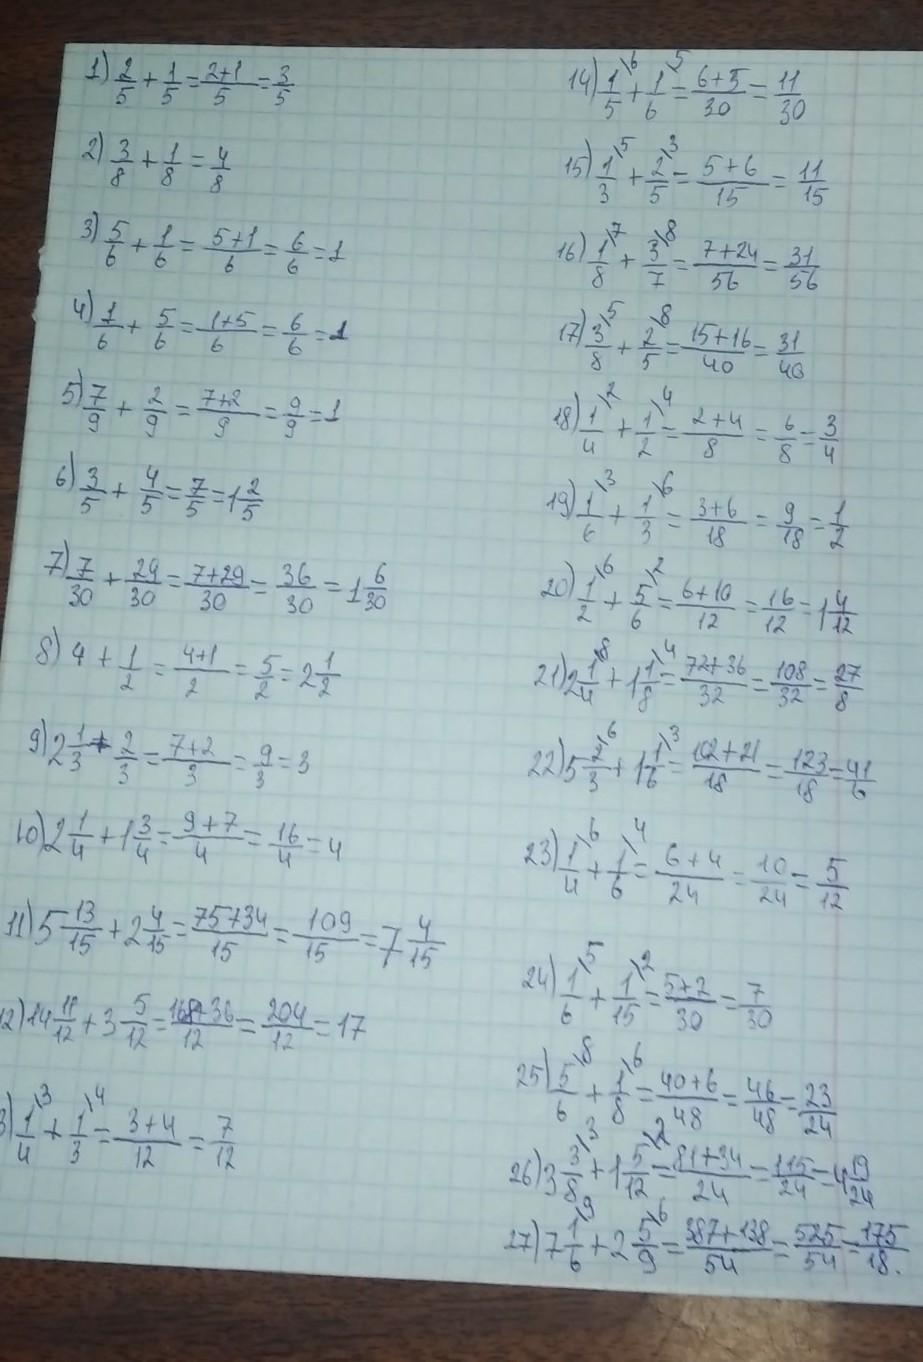 1) 2/5 + 1/5 = (2+1)/5 = 3/5
2) 3/8 + 1/8 = 4/8
3) 5/6 + 1/6 = (5+1)/6 = 6/6 = 1
4) 1/6 + 5/6 = (1+5)/6 = 6/6 = 1
5) 7/9 + 2/9 = (7+2)/9 = 9/9 = 1
6) 3/5 + 4/5 = 7/5 = 1 2/5
7) 7/30 + 29/30 = (7+29)/30 = 36/30 = 1 6/30
8) 4 + 1/2 = (4+1)/2 = 5/2 = 2 1/2
9) 2 1/3 + 2/3 = (7+2)/3 = 9/3 = 3
10) 2 1/4 + 1 3/4 = (9+7)/4 = 16/4 = 4
11) 5 13/15 + 2 4/15 = (75+34)/15 = 109/15 = 7 4/15
12) 14 11/12 + 3 5/12 = (168+36)/12 = 204/12 = 17
3) 1/4 \3 + 1/3 \4 = (3+4)/12 = 7/12
14) 1/5 \6 + 1/6 \5 = (6+5)/30 = 11/30
15) 1/3 \5 + 2/5 \3 = (5+6)/15 = 11/15
16) 1/8 \7 + 3/7 \8 = (7+24)/56 = 31/56
17) 3/8 \5 + 2/5 \8 = (15+16)/40 = 31/40
18) 1/4 \2 + 1/2 \4 = (2+4)/8 = 6/8 = 3/4
19) 1/6 \3 + 1/3 \6 = (3+6)/18 = 9/18 = 1/2
20) 1/2 \6 + 5/6 \2 = (6+10)/12 = 16/12 = 1 4/12
21) 2 1/4 \8 + 1 1/8 \4 = (72+36)/32 = 108/32 = 27/8
22) 5 2/3 \6 + 1 1/6 \3 = (102+21)/18 = 123/18 = 41/6
23) 1/4 \6 + 1/6 \4 = (6+4)/24 = 10/24 = 5/12
24) 1/6 \5 + 1/15 \2 = (5+2)/30 = 7/30
25) 5/6 \8 + 1/8 \6 = (40+6)/48 = 46/48 = 23/24
26) 3 3/8 \3 + 1 5/12 \2 = (81+34)/24 = 115/24 = 4 19/24
27) 7 1/6 \9 + 2 5/9 \6 = (387+138)/54 = 525/54 = 175/18.